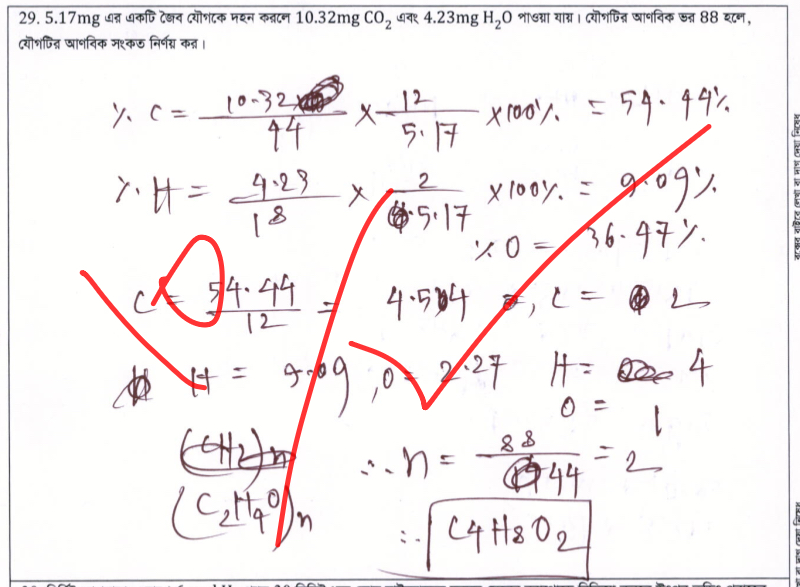 29. 5.17mg এর একটি জৈব যৌগকে দহন করলে 10.32mg CO₂ এবং 4.23mg H₂O পাওয়া যায়। যৌগটির আণবিক ভর 88 হলে,
যৌগটির আণবিক সংকত নির্ণয় কর।
% C = 10.32/44 × 12/5.17 ×100% = 54.44%
% H = 4.23/18 × 2/5.17 ×100% = 9.09%
% O = 36.47%
C = 54.44/12 = 4.54, C = 2
H = 9.09, O = 2.27 H = 4
O = 1
(CH2)n ∴ n = 88/44 = 2
(C2H4O)n
∴ C4H8O2